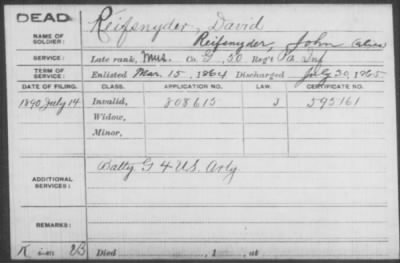 DEAD
NAME OF SOLDIER: Reifsnyder, David
Reifsnyder, John Alias
SERVICE: Late rank, Mus. Co. G, 50 Reg't Pa Inf
TERM OF SERVICE: Enlisted Mar. 15, 1864 Discharged July 30, 1865
DATE OF FILING. CLASS. APPLICATION NO. LAW. CERTIFICATE NO.
1890 July 14 Invalid, 808615 J 595161
Widow,
Minor,
ADDITIONAL SERVICES: Batty G 4 U.S. Arty
REMARKS:
Died , 1 , at